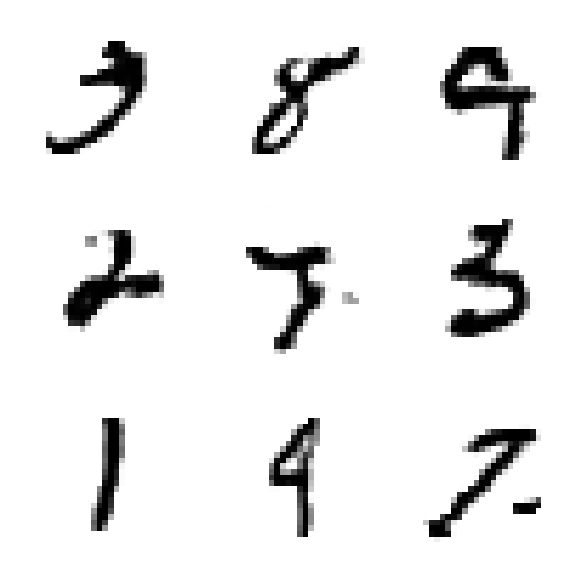 3 8 9
2 7 3
1 9 7